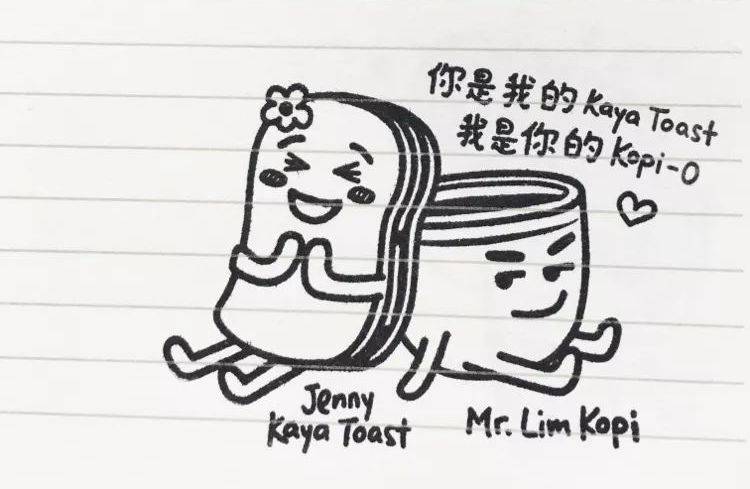 你是我的 Kaya Toast
我是你的 Kopi-O
Jenny
Kaya Toast
Mr. Lim Kopi